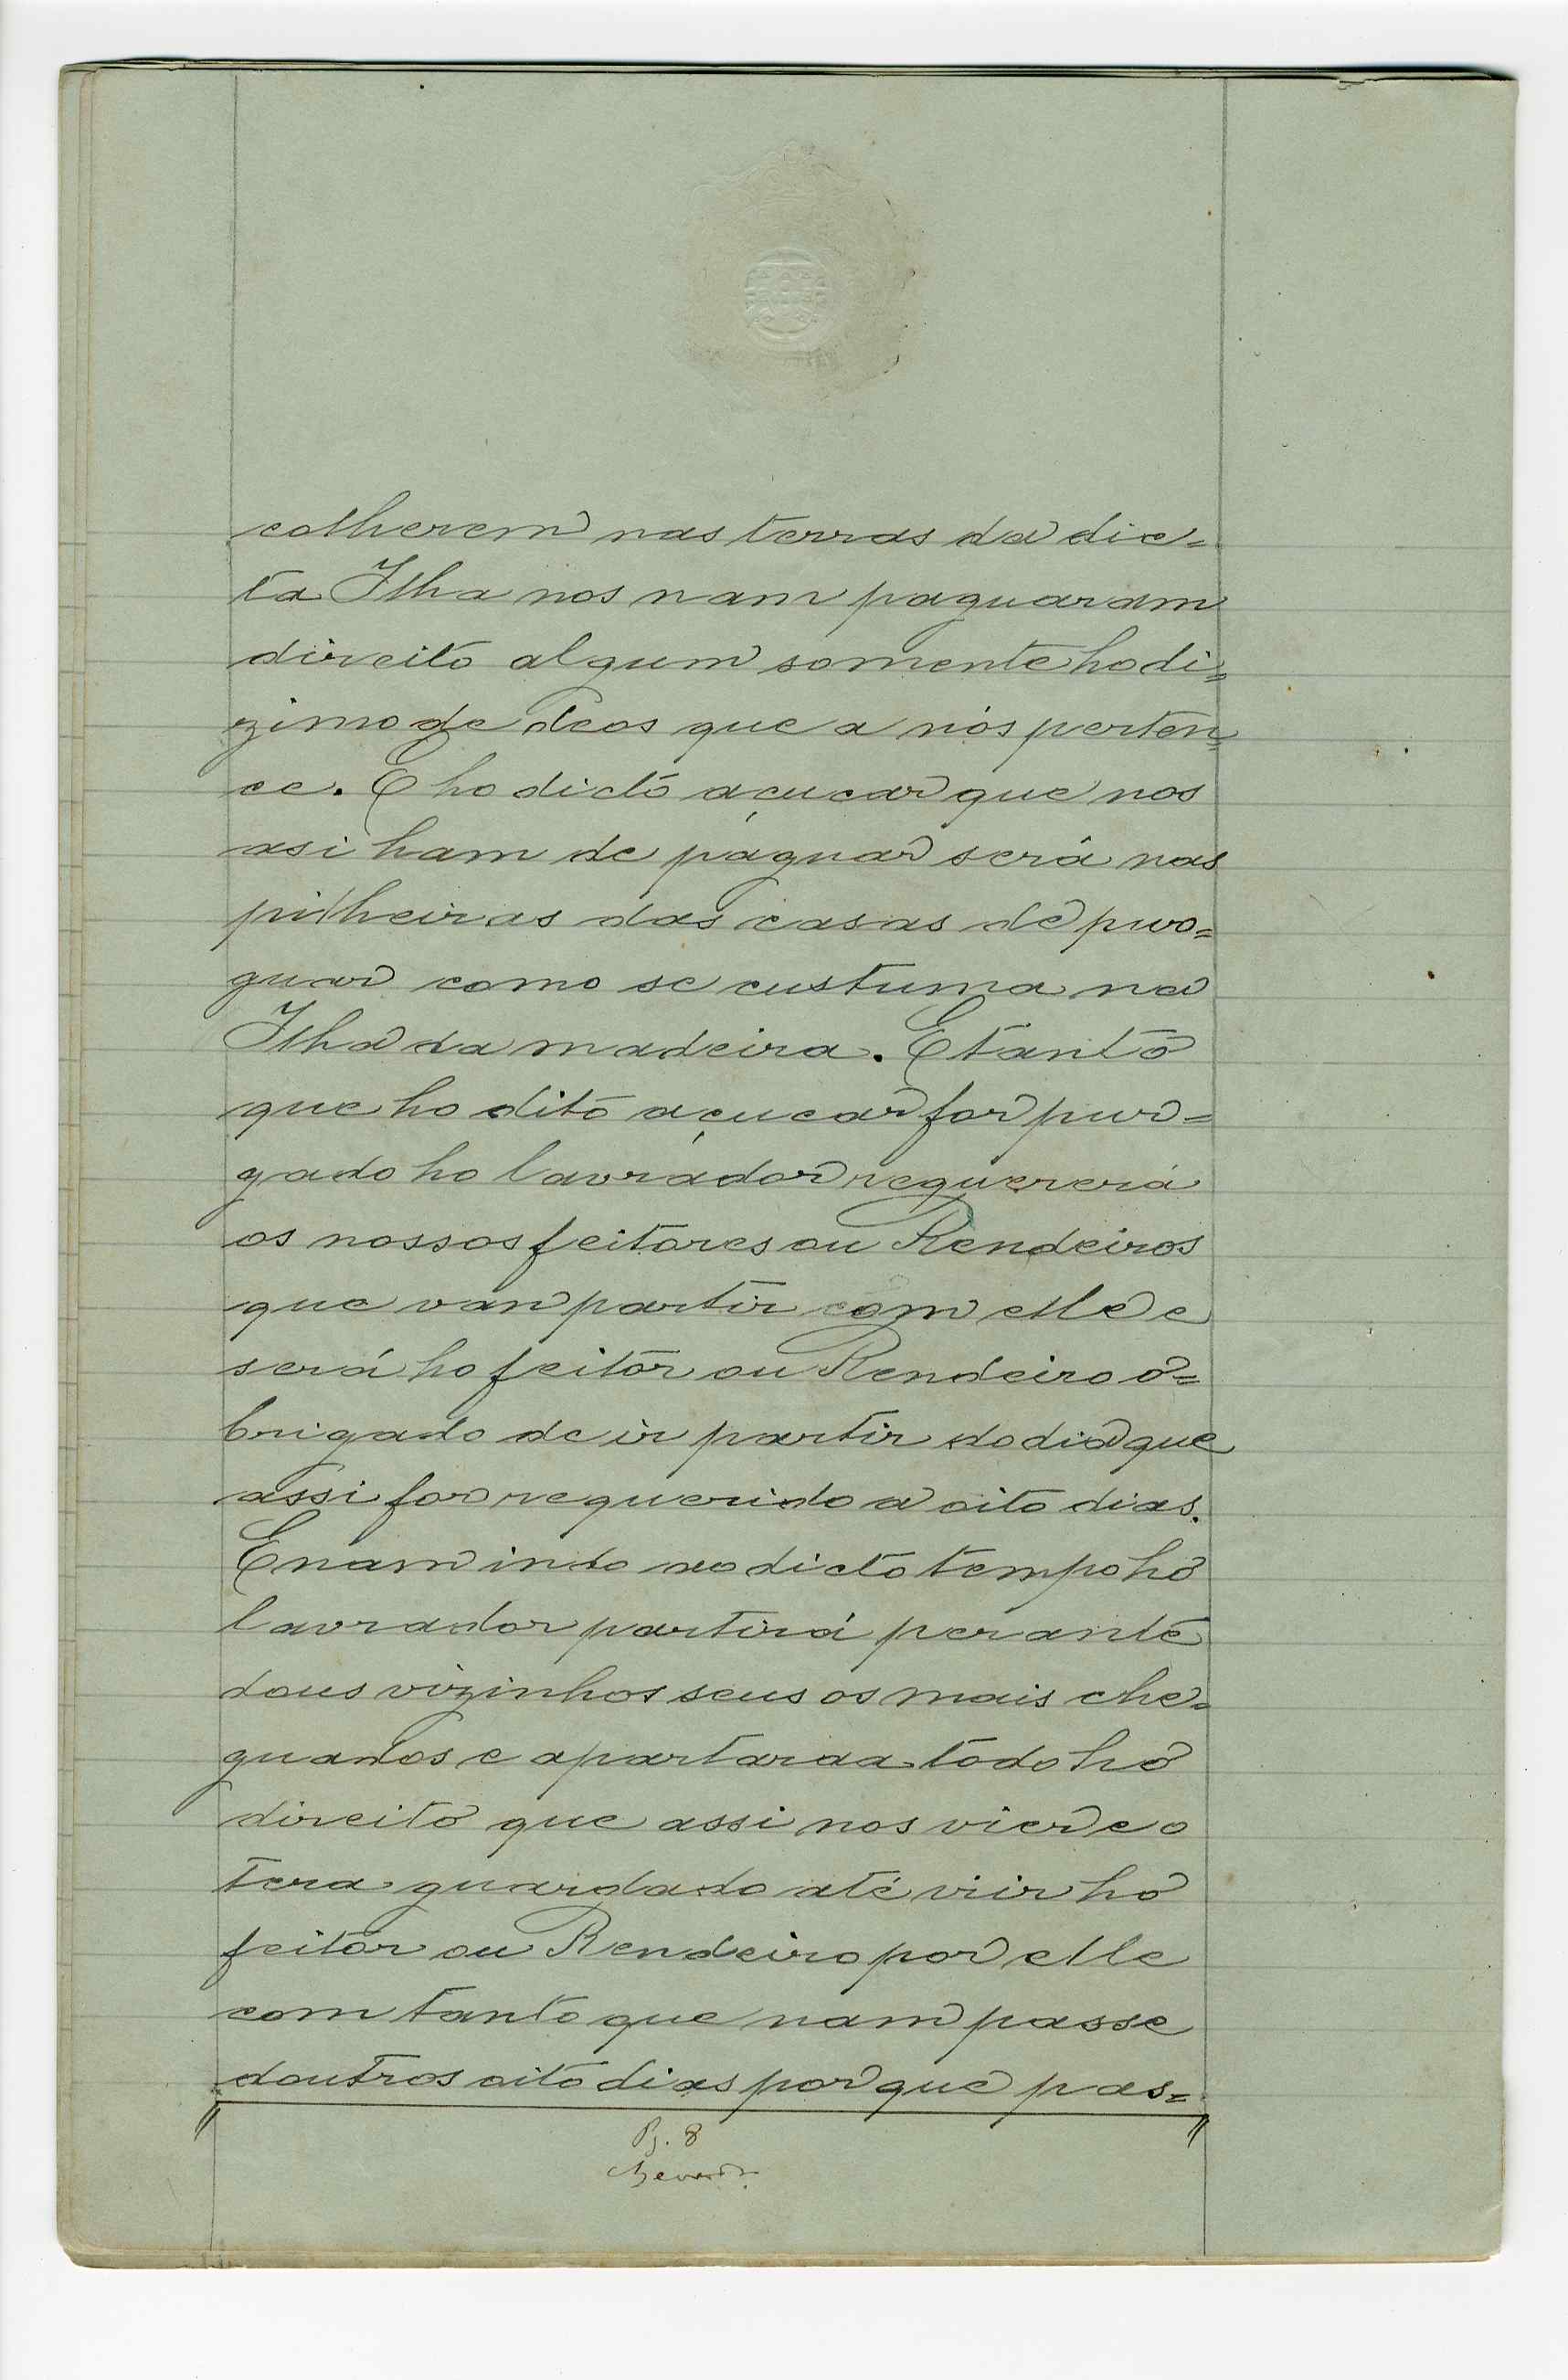 colherem nas terras da dic=
ta Ilha nos nam paguaram
direito algum somente ho di=
zimo de deos que a nós perten=
ce. E ho dicto açucar que nos
asi ham de paguar será nas
pilheiras das casas de puo=
guar como se custuma na
Ilha da madeira. E tanto
que ho dito açucar for pur=
gado ho lavrador requererá
os nossos feitores ou Rendeiros
que van partir com elle e
será ho feitor ou Rendeiro o=
brigado de ir partir do dia que
assi for requerido a oito dias.
E nam indo no dicto tempo ho
lavrador partirá perante
dous vizinhos seus os mais che=
guados e apartaraa todo ho
direito que assi nos vier e o
tera guardado até viir ho
feitor ou Rendeiro por elle
com tanto que nam passe
doutros oito dias por que pas=
Pg. 8